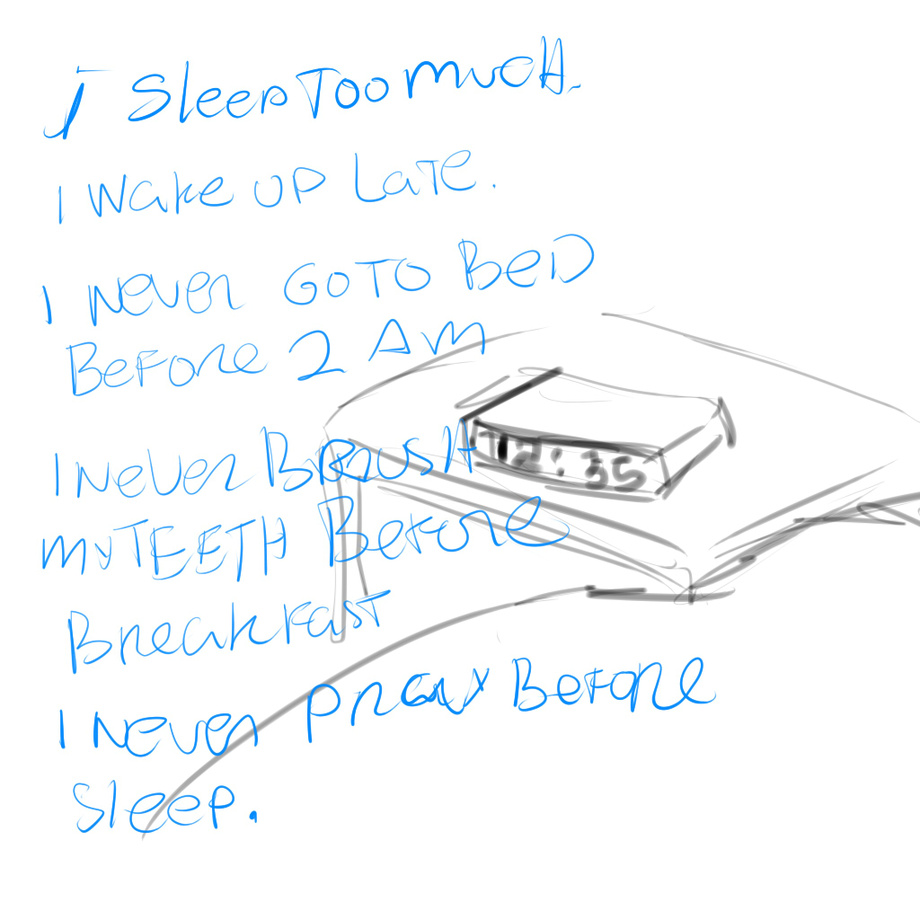 I Sleep Too much.
I wake up Late.
I never GO TO BED
Before 2 AM
I never Brush
my TEETH Before
Breakfast
I never pray Before
Sleep.
12:35